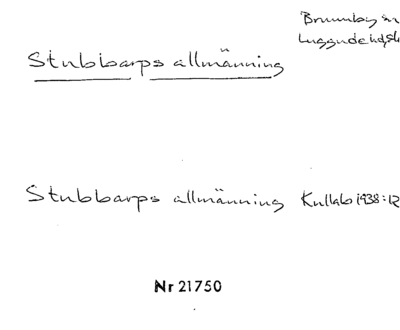 Brunnby sn
Luggude hd, Sk
Stubbarps allmänning
Stubbarps allmänning Kullab 1938:12
Nr 21750